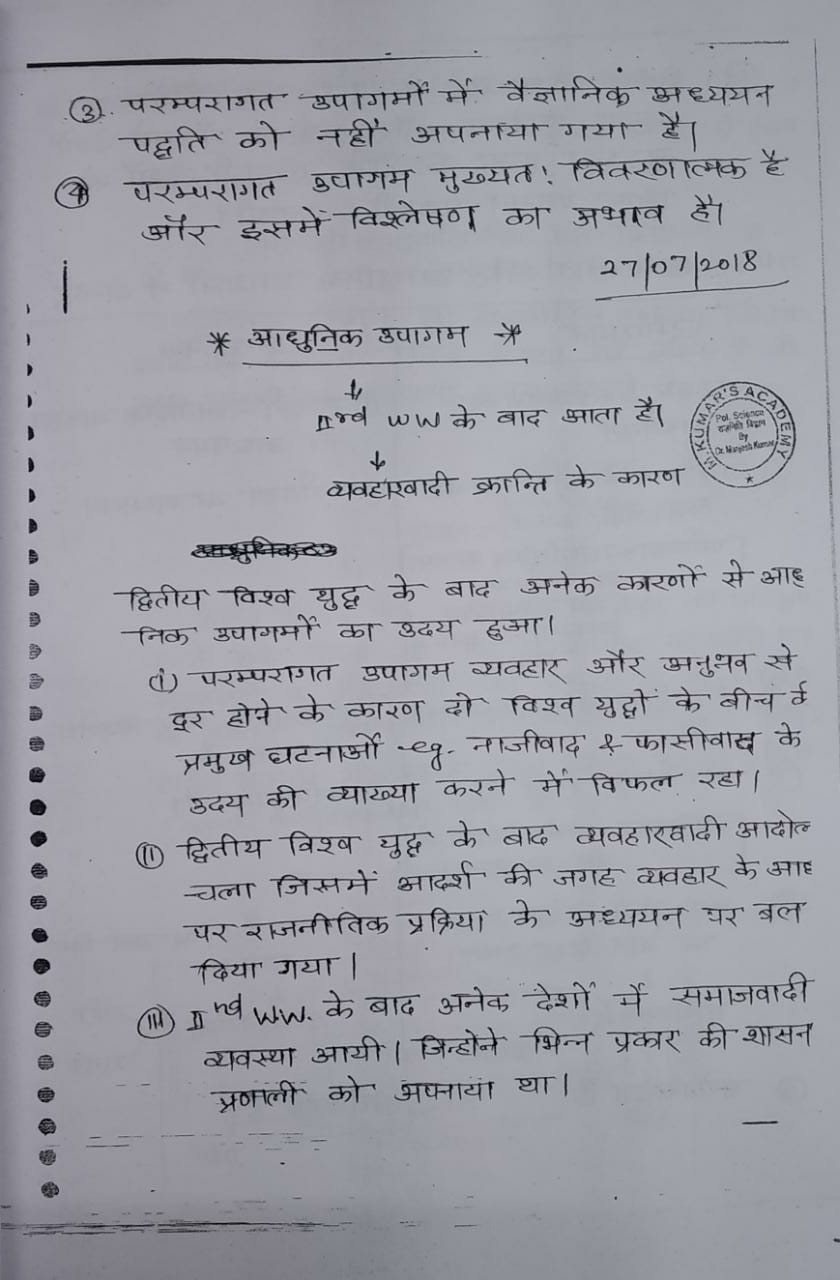 ③. परम्परागत उपागमों में वैज्ञानिक अध्ययन
पद्धति को नहीं अपनाया गया है।
④ परम्परागत उपागम मुख्यत: विवरणात्मक है
और इसमें विश्लेषण का अभाव है।
27/07/2018
* आधुनिक उपागम *
↓
IIrd WW के बाद आता है।
↓
व्यवहारवादी क्रान्ति के कारण
M.KUMAR'S ACADEMY
Pol. Science
राजनीति विज्ञान
By
Dr. Manjesh Kumar
द्वितीय विश्व युद्ध के बाद अनेक कारणों से आध
निक उपागमों का उदय हुआ।
(i) परम्परागत उपागम व्यवहार और अनुभव से
दूर होने के कारण दो विश्व युद्धों के बीच
प्रमुख घटनाओं eg. नाजीवाद & फासीवाद के
उदय की व्याख्या करने में विफल रहा।
(ii) द्वितीय विश्व युद्ध के बाद व्यवहारवादी आदोल
चला जिसमें आदर्श की जगह व्यवहार के आध
पर राजनीतिक प्रक्रिया के अध्ययन पर बल
दिया गया।
(iii) IInd WW. के बाद अनेक देशों में समाजवादी
व्यवस्था आयी। जिन्होने भिन्न प्रकार की शासन
प्रणाली को अपनाया था।